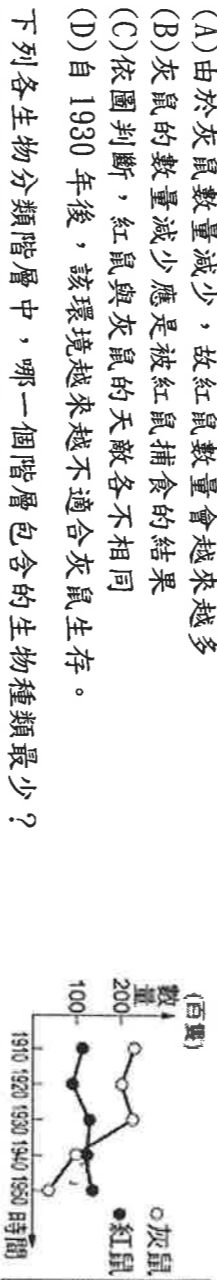 (A)由於灰鼠數量減少，故紅鼠數量會越來越多
(B)灰鼠的數量減少應是被紅鼠捕食的結果
(C)依圖判斷，紅鼠與灰鼠的天敵各不相同
(D)自 1930 年後，該環境越來越不適合灰鼠生存。
下列各生物分類階層中，哪一個階層包含的生物種類最少？
(百隻)
數量
200
100
1910 1920 1930 1940 1950 時間
灰鼠
紅鼠